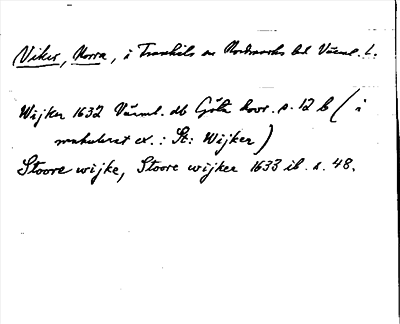 Viker, Norra, i Trankils sn Nordmarks hd Värml. l.
Wijker 1632 Värml. db Göta hovr. s. 12 b (i
makulerat ex.: St: Wijker)
Stoore wijke, Stoore wijker 1633 ib. s. 48.